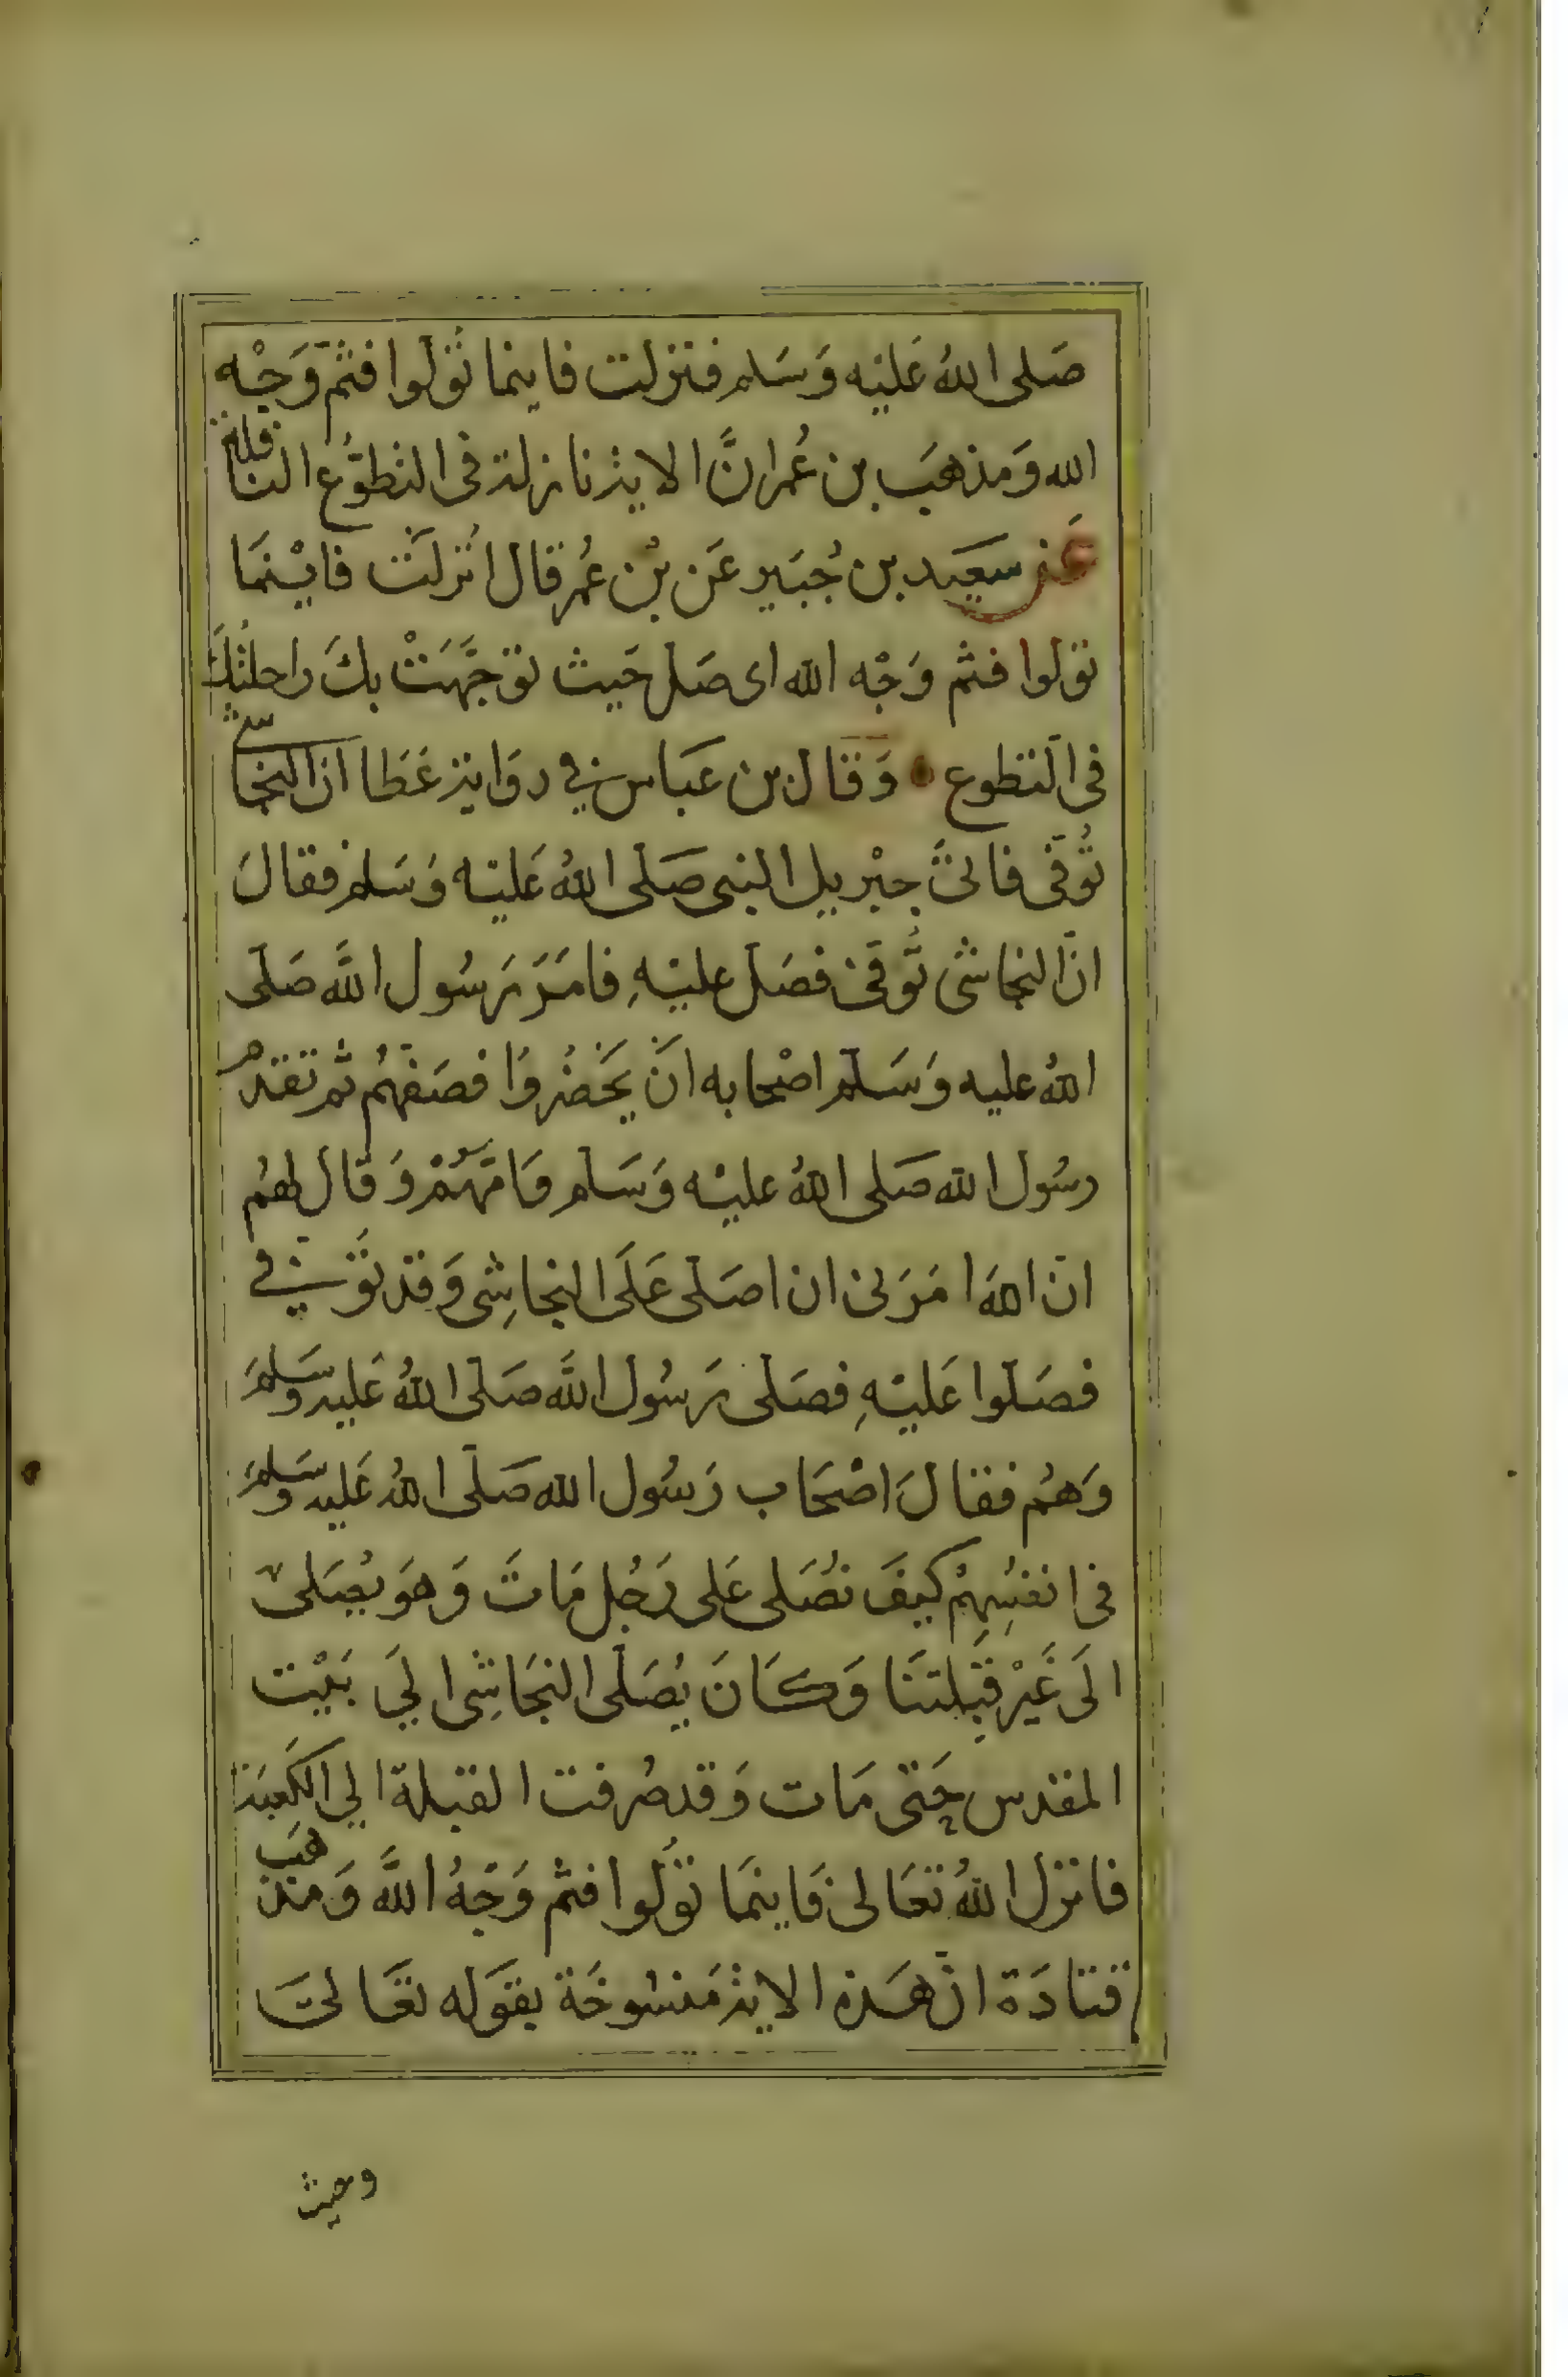 صَلى اللهُ عَليْه وَسَلم فنزلت فاينما تُوَلوا فثمّ وَجْه
الله وَمذهَب بن عُمر انَّ الاية نازلة في التطوُّع النافلة
عَن سَعيَد بن جُبَير عَن بْن عُمر قال اُنزلَت فايْنمَا
تولوا فثم وَجْه الله اى صَل حَيث تَوَجَّهَتْ بكَ راحلتُكَ
فى التطوع وَقال بن عَبَاس في روَاية عَطَا انّ النجاشى
تُوُفّى فاتىَ جبْريل النبى صَلى اللهُ عَليْه وَسَلم فقالَ
انّ النجاشى تُوفّى فصَل عليْهِ فامَرَ رَسُول اللَّه صَلّى
اللهُ عليه وَسَلّم اصْحَابه انَ يَحَضُروُا فصَفهُم ثم تقدم
رسُول الله صَلى اللهُ عليْه وَسَلم وَامَّهُمْ وَقال لهُم
انّ اللهَ امَرَنى ان اصَلى عَلَى النجاشِى وَقد تُوَفّي
فصَلوا عَليْهِ فصَلى رَسُول اللَّه صَلى اللهُ عَليه وسَلمَ
وَهُم فقالَ اصْحَاب رَسُول الله صَلّى اللهُ عَليه وسَلمَ
فى انفسِهِمْ كيفَ نُصَلى عَلى رَجُل مَاتَ وَهوَ يُصَلى
الَى غَيْر قبْلتنَا وَكَانَ يُصَلى النجَاشِى الي بَيْت
المقدس حَتى مَات وَقد صُرفت القبلة الي الكعبَة
فانزل اللهُ تعَالى فَاينمَا تُوَلُوا فثم وَجْهُ اللَّه وَمَذهَب
قتادَة انّ هَذه الاية مَنسُوخَة بقوَله تعَالىَ
وحيث